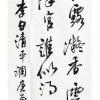 露凝香雲
漢宮誰得似
李白清平調